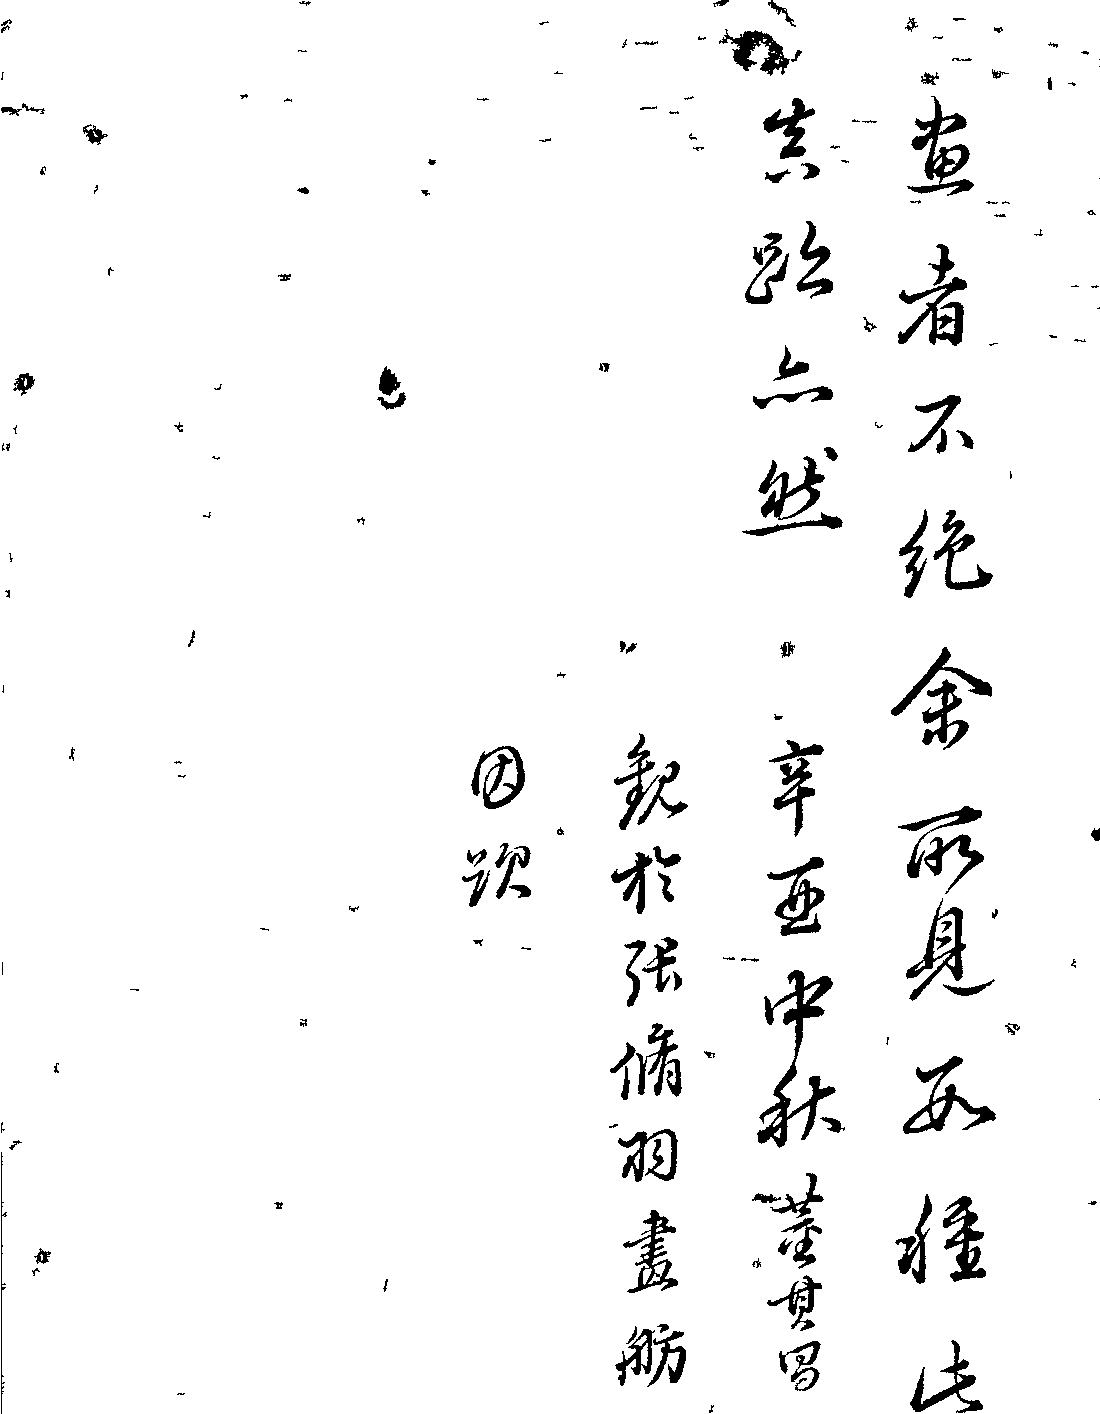 畫者不絕余所見數種此
真跡亦然
辛亥中秋董其昌
觀於張脩羽畫舫
因題